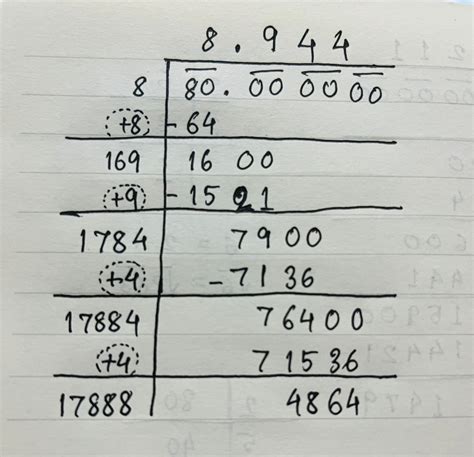 8.944
8 80.00 00 00
+8 -64
169 16 00
+9 -15 21
1784 7900
+4 -7136
17884 76400
+4 71536
17888 4864